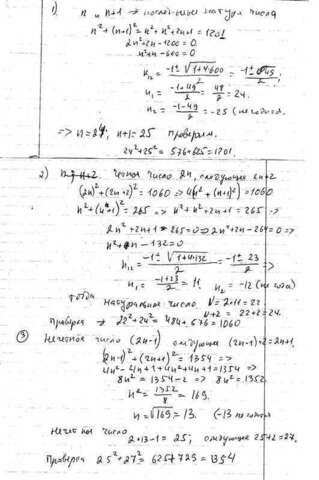 1)
n и n+1 → последовные натур числа
n² + (n+1)² = n² + n² + 2n+1 = 1201
2n² + 2n - 1200 = 0
n² + n - 600 = 0
n₁,₂ = -1 ± √1+4600 / 2 = -1 ± / 2 ;
n₁ = -1+49 / 2 = 48 / 2 = 24.
n₂ = -1-49 / 2 = -25
=> n = 24; n+1 = 25 проверяем.
24² + 25² = 576 + 625 = 1201.
2) Четное число 2n, следующее 2n+2
(2n)² + (2n+2)² = 1060 => 4(n² + (n+1)²) = 1060
n² + (n+1)² = 265 => n² + n² + 2n+1 = 265 =>
2n² + 2n+1 - 265 = 0 => 2n² + 2n - 264 = 0 =>
n² + n - 132 = 0
n₁,₂ = -1 ± √1+4·132 / 2 = -1 ± 23 / 2 =>
n₁ = -1+23 / 2 = 11. n₂ = -12
тогда натуральные число V = 2·11 = 22
V+2 = 22+2 = 24.
Проверка → 22² + 24² = 484 + 576 = 1060
3) Нечетное число (2n-1) следующее (2n-1)+2 = 2n+1.
(2n-1)² + (2n+1)² = 1354 =>
4n² - 4n + 1 + 4n² + 4n + 1 = 1354 =>
8n² = 1354 - 2 => 8n² = 1352
n² = 1352 / 8 = 169.
n = √169 = 13. (-13
Нечетное число
2·13-1 = 25; следующее 25+2 = 27.
Проверка 25² + 27² = 625+729 = 1354